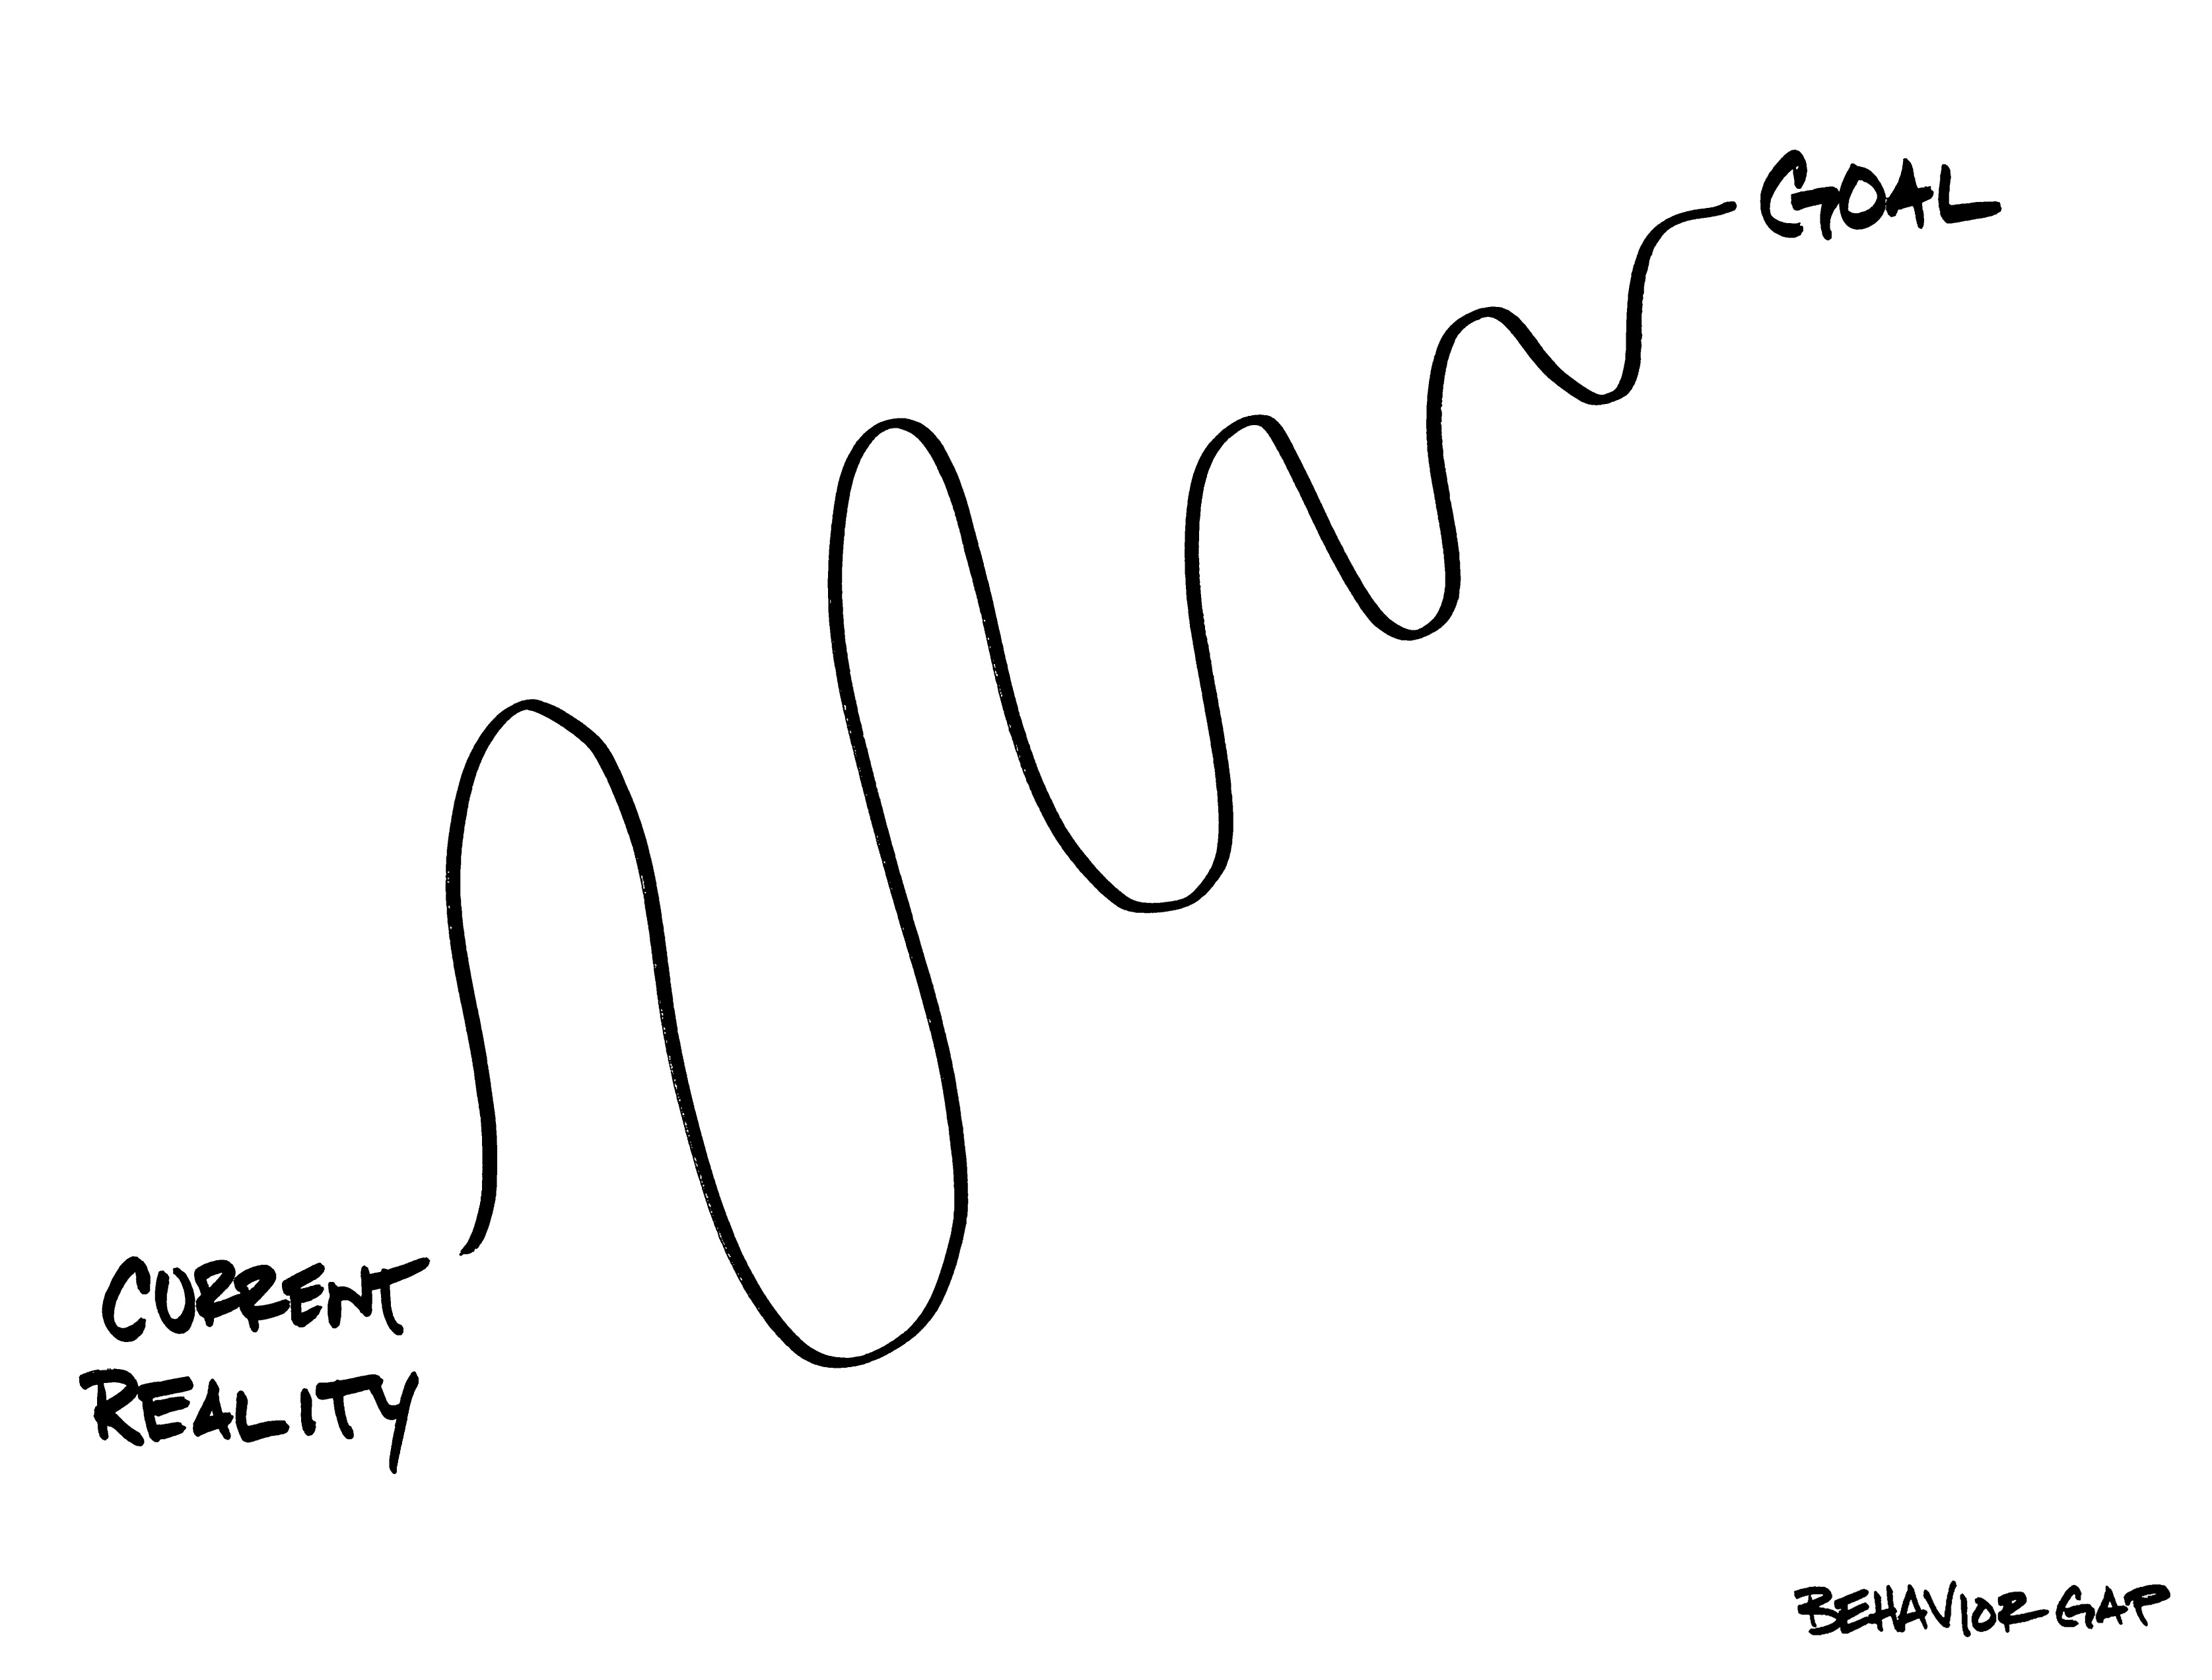 GOAL
CURRENT
REALITY
BEHAVIOR GAP